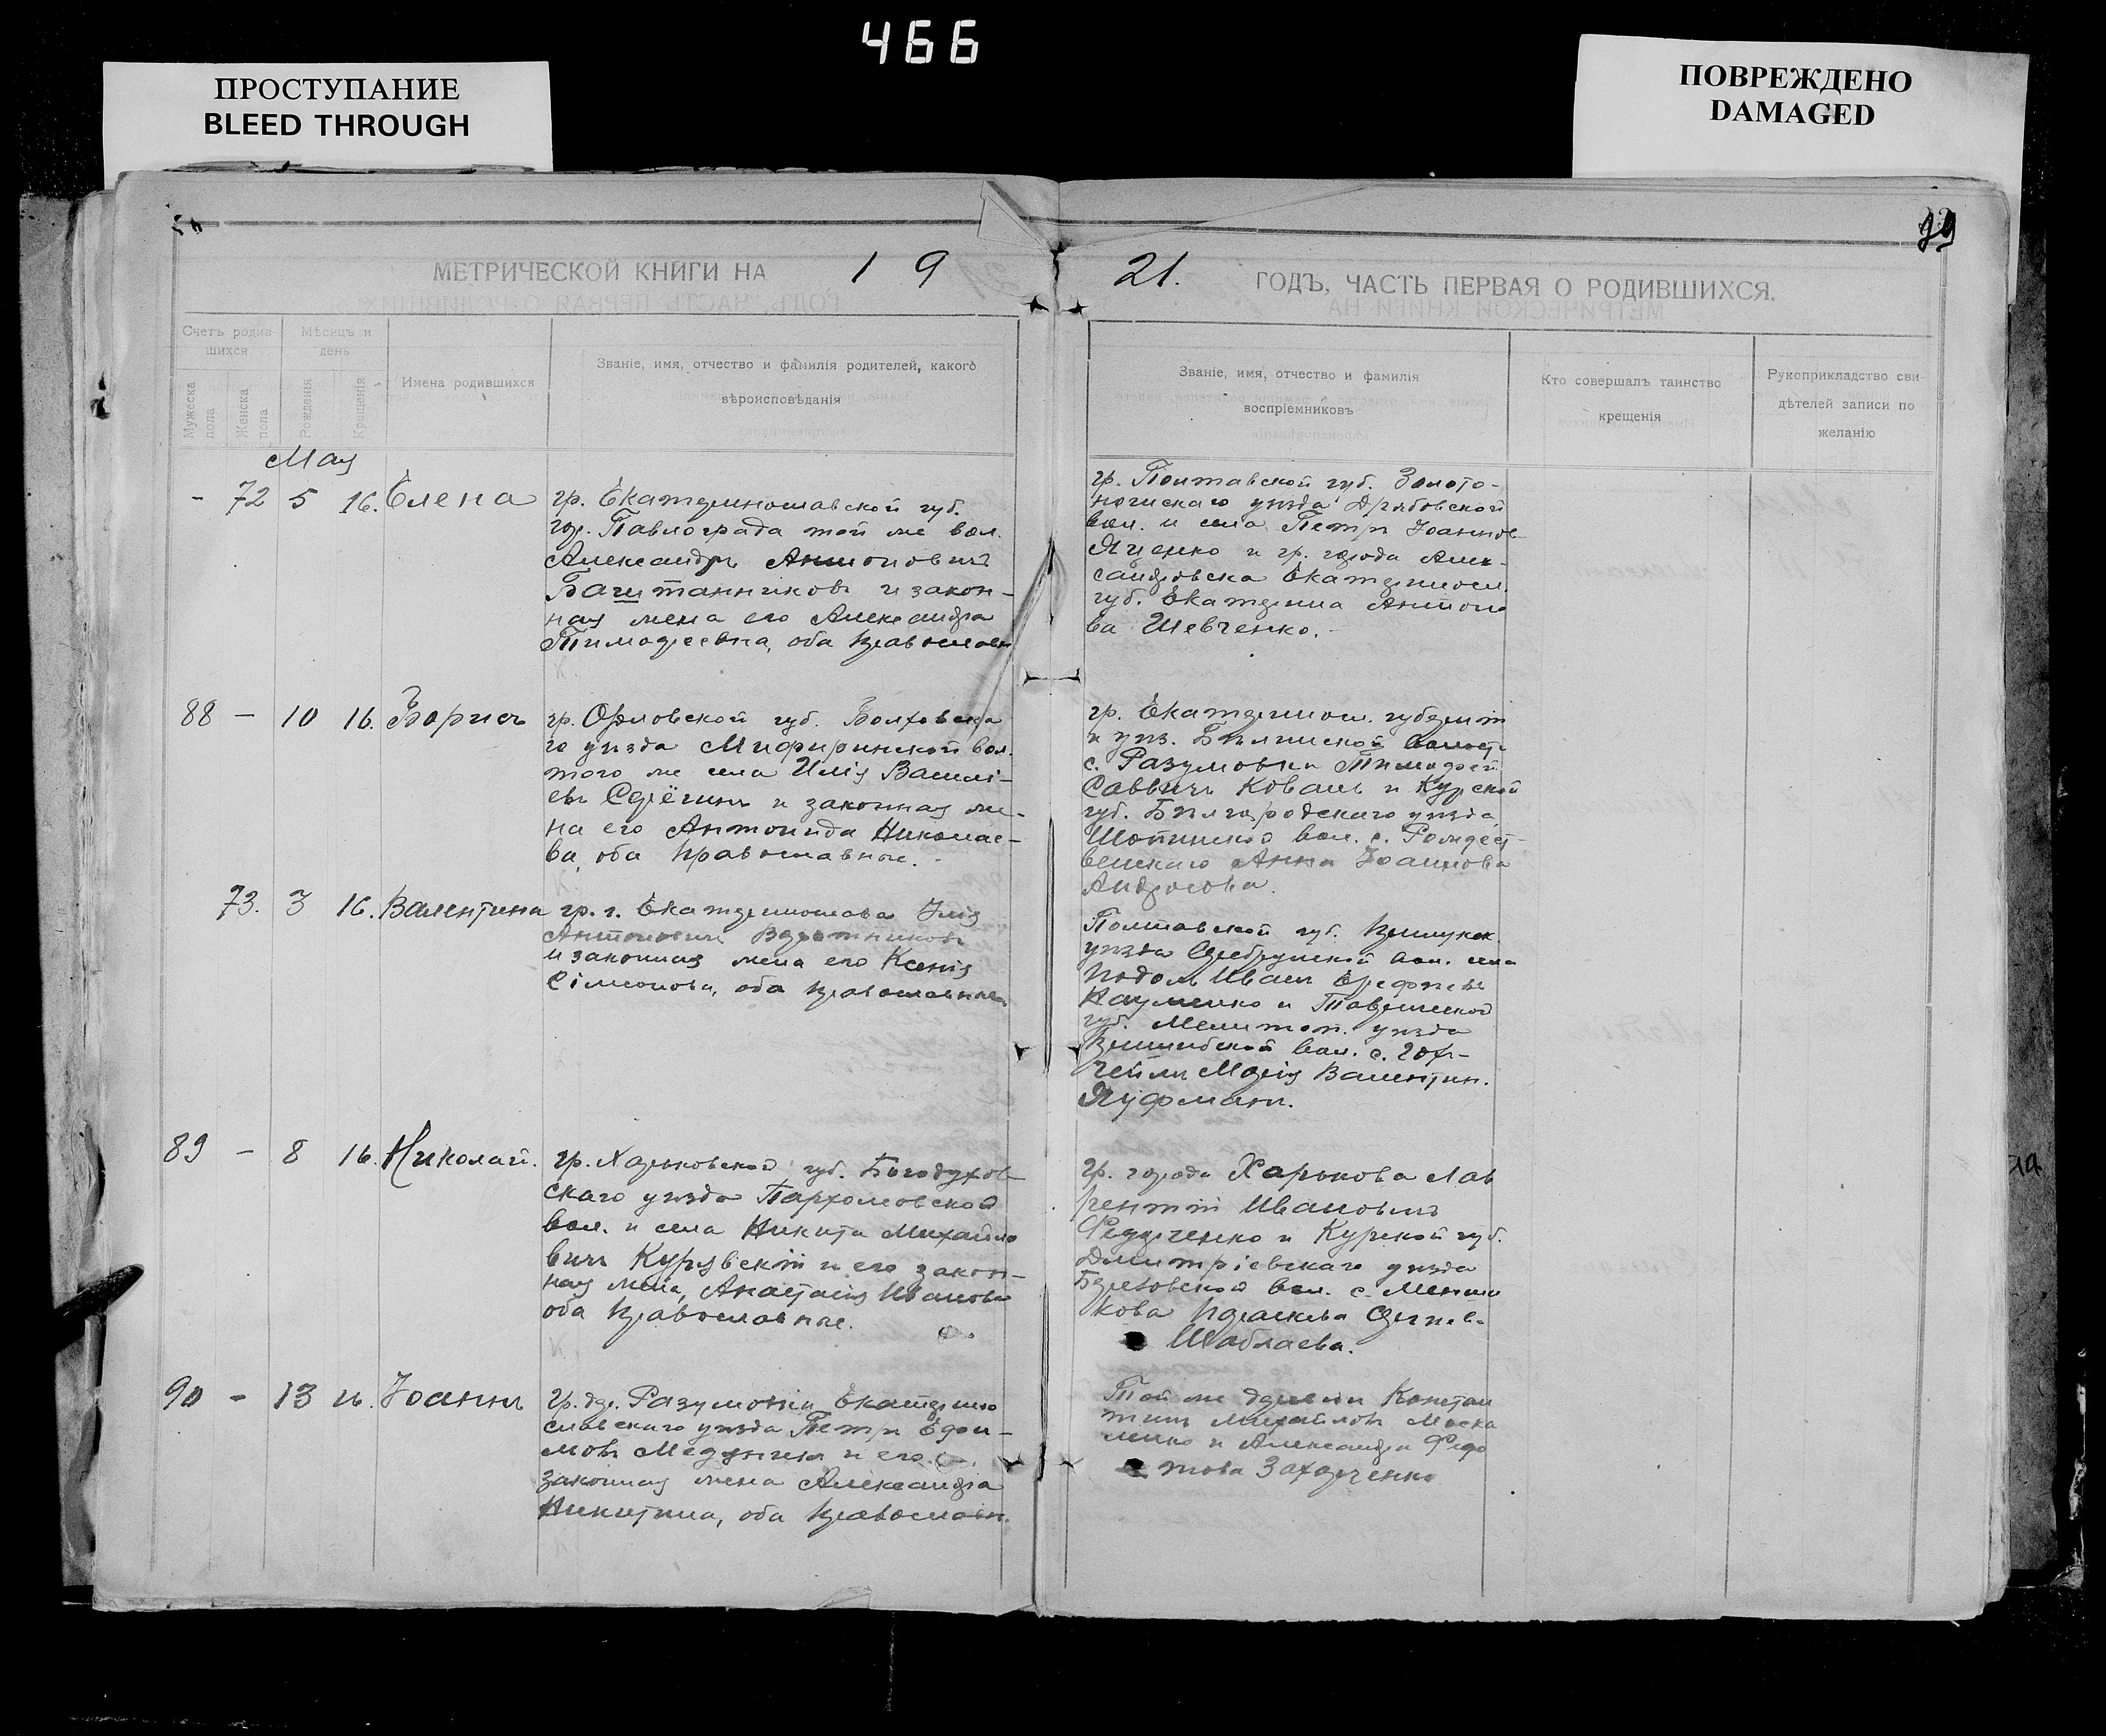 466
ПРОСТУПАНИЕ
BLEED THROUGH
ПОВРЕЖДЕНО
DAMAGED
МЕТРИЧЕСКОЙ КНИГИ НА 19
21. ГОДЪ, ЧАСТЬ ПЕРВАЯ О РОДИВШИХСЯ.
Счетъ родив
шихся
Мѣсяцъ и
день
Мужеска
пола
Женска
пола
Рожденія
Крещенія
Имена родившихся
Званіе, имя, отчество и фамилія родителей, какого
вѣроисповѣданія
Званіе, имя, отчество и фамилія
воспріемниковъ
Кто совершалъ таинство
крещенія
Рукоприкладство сви-
дѣтелей записи по
желанію
Мая
- 72 5 16. Елена
гр. Екатеринославской губ.
гор. Павлограда той же вол.
Александръ Антоновичъ
Баштанниковъ и закон-
ная жена его Александра
Тимофеевна, оба православн
гр. Полтавской губ. Золото-
ношскаго уѣзда
вол. и села Петръ Іоаннов
Яценко и гр. города Алек-
сандровска Екатериносл.
губ. Екатерина Антоно
ва Шевченко.-
88 - 10 16. Борисъ
гр. Орловской губ. Болховска
го уѣзда вол.
того же села Илія Василі-
евъ Серёгинъ и законная же-
на его Антонида Николае-
ва, оба православные.-
гр. Екатериносл. губерніи
и уѣз. волости
с. Разумовки Тимофей
Саввичъ Коваль и Курской
губ. Бѣлгородскаго уѣзда
вол. с. Рождест-
венскаго Анна Іоаннова
Андросова.
73. 3 16. Валентина
гр. г. Екатеринослава Илія
Антоновичъ
и законная жена его Ксенія
Сімеонова, оба православные
Полтавской губ. Прилукск.
уѣзда вол. села
Иванъ
Науменко и Таврической
губ. Мелитоп. уѣзда
вол. с.
Марія Валентин.
89 - 8 16. Николай.
гр. Харьковской губ. Богодухов-
скаго уѣзда Пархомовской
вол. и села Никита Михайло
вичъ и его закон-
ная жена, Анастасія Иванова
оба православные.
гр. города Харькова Лав
рентій Ивановичъ
Федорченко и Курской губ.
Дмитріевскаго уѣзда
вол. с.
Шаблаева.
90 - 13 16. Іоаннъ
гр. дер. Разумовки Екатерино
славскаго уѣзда Петръ
и его
законная жена Александра
Никитина, оба православн.
Той же деревни Констан
тинъ Михайловъ Моска
ленко и Александра Федо
това Захарченко